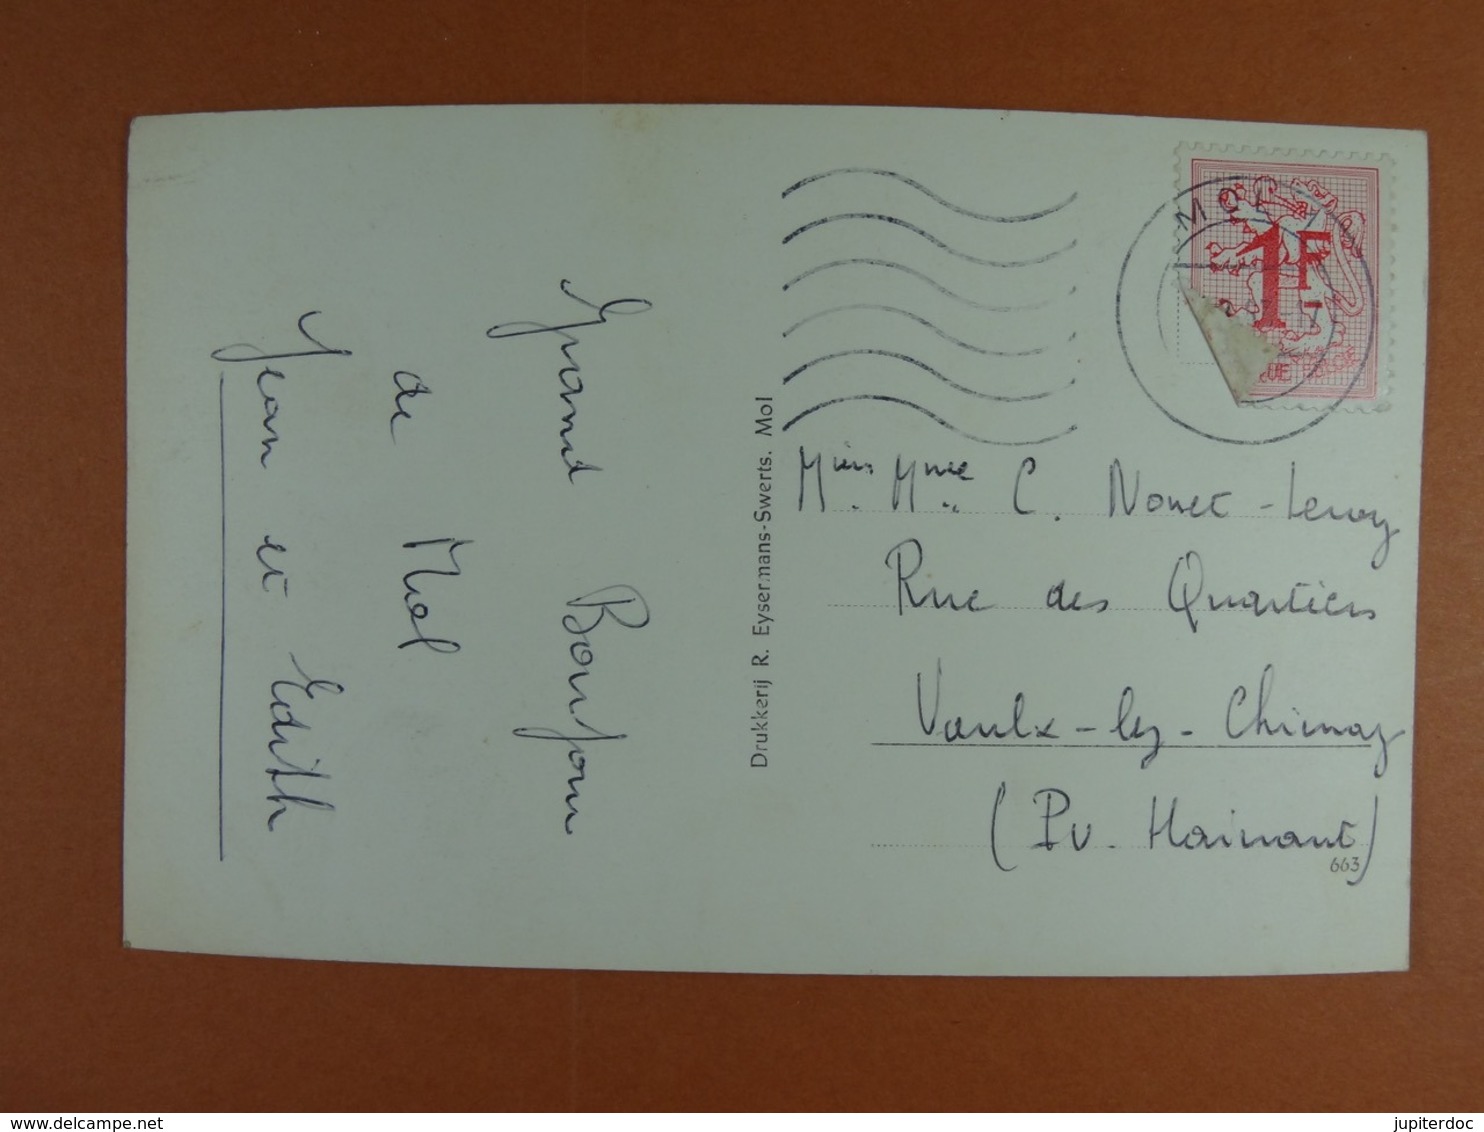 Grand Bonjour
de Mol
Jean et Edith
Drukkerij R. Eysermans-Swerts. Mol
MOL
1F
C. Nouet-Leroy
Rue des Quartiers
Vaulx-lez-Chimay
(Pv. Hainaut)
663
delcampe.net
jupiterdoc